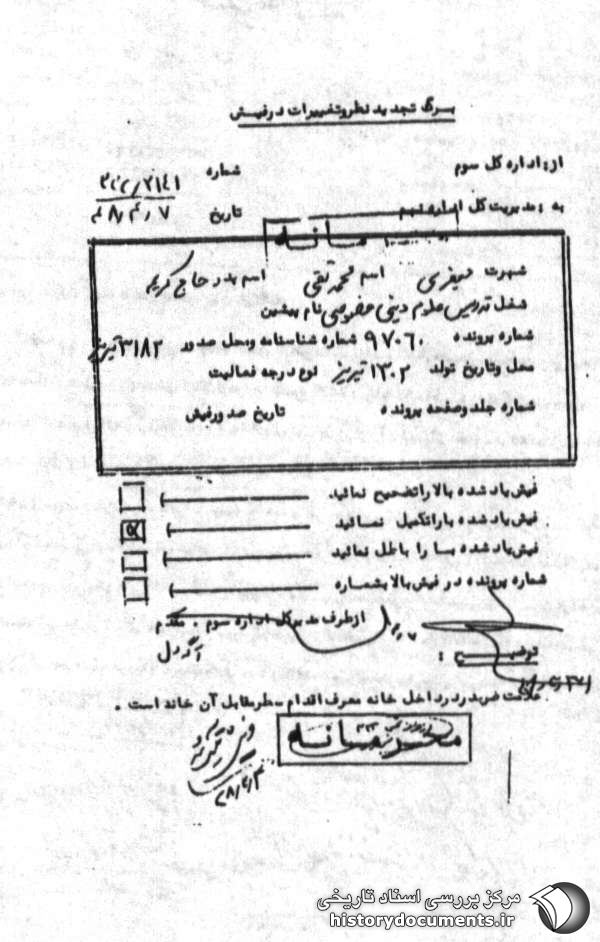 برگ تجدید نظر و تغییرات در فیش
از: اداره کل سوم
شماره ۳۱۲/۲۱۴۱
به: مدیریت کل اداره نهم
تاریخ ۴۸/۴/۷
شهرت جعفری اسم محمد تقی اسم پدر حاج کریم
شغل تدریس علوم دینی خصوصی نام پیشین
شماره پرونده ۹۷۰۶۰ شماره شناسنامه و محل صدور ۳۱۸۲ تبریز
محل و تاریخ تولد ۱۳۰۲ تبریز نوع درجه فعالیت
شماره جلد و صفحه پرونده تاریخ صدور فیش
فیش یاد شده بالا را تصحیح نمائید
فیش یاد شده بالا را تکمیل نمائید
فیش یاد شده را باطل نمائید
شماره پرونده در فیش بالا بشماره
از طرف مدیر کل اداره سوم . مقدم
توضیح :
علامت ضربدر در داخل خانه معرف اقدام سطر مقابل آن خانه است .
محرمانه
مرکز بررسی اسناد تاریخی
historydocuments.ir